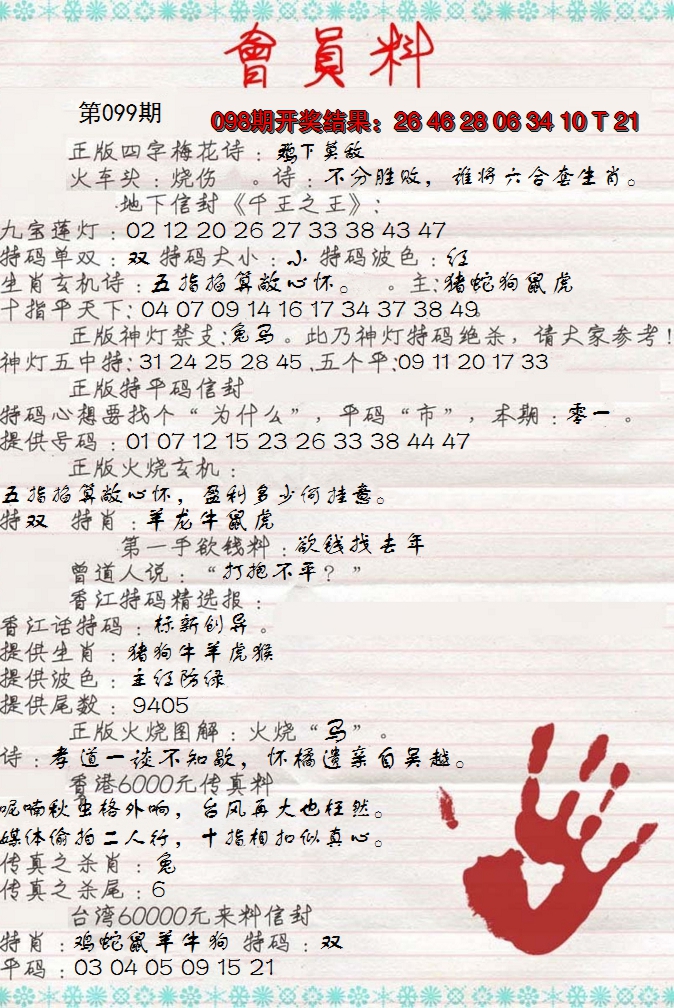 會員料
第099期
098期开奖结果：26 46 28 06 34 10 T 21
正版四字梅花诗：鸡下莫敌
火车头：烧伤 。诗：不分胜败，谁将六合套生肖。
地下信封《千王之王》：
九宝莲灯：02 12 20 26 27 33 38 43 47
特码单双：双 特码大小：小 特码波色：红
生肖玄机诗：五指掐算敞心怀。 。主：猪蛇狗鼠虎
十指平天下：04 07 09 14 16 17 34 37 38 49
正版神灯禁支：兔马。此乃神灯特码绝杀，请大家参考！
神灯五中特：31 24 25 28 45 .五个平：09 11 20 17 33
正版特平码信封
特码心想要找个“为什么”，平码“市”，本期：零一 。
提供号码：01 07 12 15 23 26 33 38 44 47
正版火烧玄机：
五指掐算敞心怀，盈利多少何挂意。
特双 特肖：羊龙牛鼠虎
第一手欲钱料：欲钱找去年
曾道人说：“打抱不平？”
香江特码精选报：
香江话特码：标新创异 。
提供生肖：猪狗牛羊虎猴
提供波色：主红防绿
提供尾数：9405
正版火烧图解：火烧“马”。
诗：孝道一谈不知歇，怀橘遗亲自吴越。
香港6000元传真料
呢喃秋虫格外响，台风再大也枉然。
媒体偷拍二人行，十指相扣似真心。
传真之杀肖：兔
传真之杀尾：6
台湾60000元来料信封
特肖：鸡蛇鼠羊牛狗 特码：双
平码：03 04 05 09 15 21